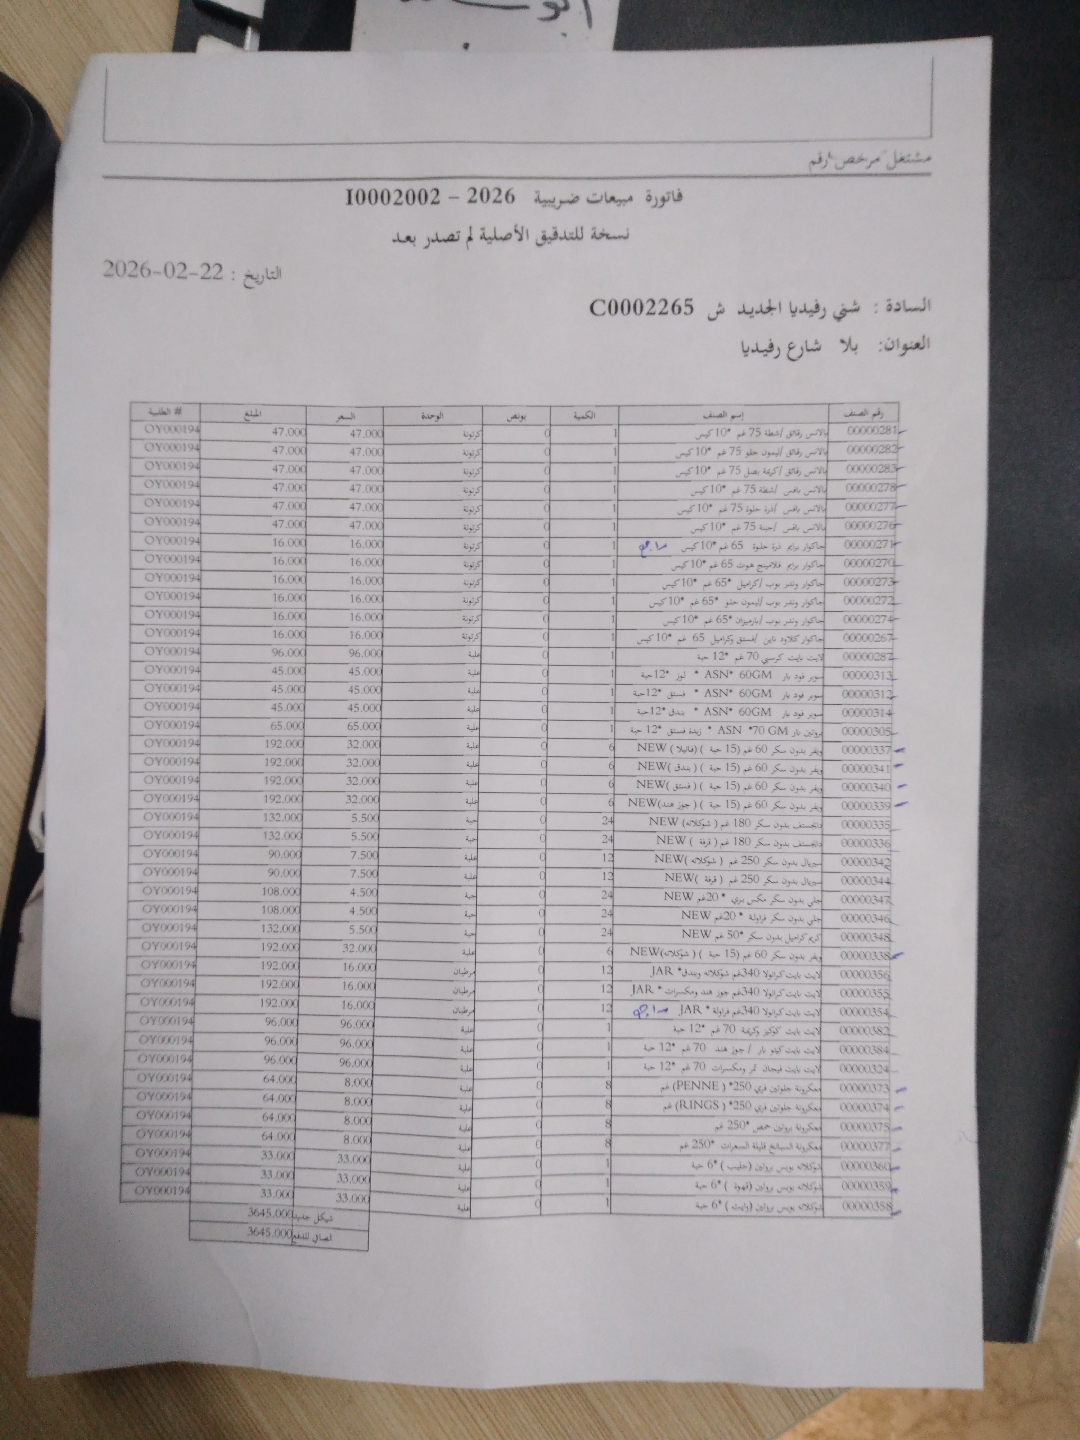 مشتغل مرخص رقم
فاتورة مبيعات ضريبية 2026 - I0002002
نسخة للتدقيق الأصلية لم تصدر بعد
التاريخ : 22-02-2026
السادة : شني رفيديا الجديد ش C0002265
العنوان: بلا شارع رفيديا
رقم الصنف إسم الصنف الكمية بونص الوحدة السعر المبلغ # الطلبية
00000281 بالانس رقائق /شطة 75 غم *10 كيس 1 0 كرتونة 47.000 47.000 OY000194
00000282 بالانس رقائق /ليمون حلو 75 غم *10 كيس 1 0 كرتونة 47.000 47.000 OY000194
00000283 بالانس رقائق /كريمة بصل 75 غم *10 كيس 1 0 كرتونة 47.000 47.000 OY000194
00000278 بالانس بافس /شطة 75 غم *10 كيس 1 0 كرتونة 47.000 47.000 OY000194
00000277 بالانس بافس /ذرة حلوة 75 غم *10 كيس 1 0 كرتونة 47.000 47.000 OY000194
00000276 بالانس بافس /جبنة 75 غم *10 كيس 1 0 كرتونة 47.000 47.000 OY000194
00000271 جاكوار برايم ذرة حلوة 65 غم *10 كيس 1 0 كرتونة 16.000 16.000 OY000194
00000270 جاكوار برايم فلامينج هوت 65 غم *10 كيس 1 0 كرتونة 16.000 16.000 OY000194
00000273 جاكوار وندر بوب /كراميل *65 غم *10 كيس 1 0 كرتونة 16.000 16.000 OY000194
00000272 جاكوار وندر بوب /ليمون حلو *65 غم *10 كيس 1 0 كرتونة 16.000 16.000 OY000194
00000274 جاكوار وندر بوب /بارميزان *65 غم *10 كيس 1 0 كرتونة 16.000 16.000 OY000194
00000267 جاكوار كلاود ناين /فستق وكراميل 65 غم *10 كيس 1 0 كرتونة 16.000 16.000 OY000194
00000287 لايت بايت كرسبي 70 غم *12 حبة 1 0 علبة 96.000 96.000 OY000194
00000313 سوبر فود بار ASN* 60GM * لوز *12حبة 1 0 علبة 45.000 45.000 OY000194
00000312 سوبر فود بار ASN* 60GM * فستق *12حبة 1 0 علبة 45.000 45.000 OY000194
00000314 سوبر فود بار ASN* 60GM * بندق *12حبة 1 0 علبة 45.000 45.000 OY000194
00000305 بروتين بار ASN *70 GM * زبدة فستق *12 حبة 1 0 علبة 65.000 65.000 OY000194
00000337 ويفر بدون سكر 60 غم (15 حبة ) (فانيلا ) NEW 6 0 علبة 32.000 192.000 OY000194
00000341 ويفر بدون سكر 60 غم (15 حبة ) ( بندق )NEW 6 0 علبة 32.000 192.000 OY000194
00000340 ويفر بدون سكر 60 غم (15 حبة ) ( فستق )NEW 6 0 علبة 32.000 192.000 OY000194
00000339 ويفر بدون سكر 60 غم (15 حبة ) ( جوز هند)NEW 6 0 علبة 32.000 192.000 OY000194
00000335 دايجستف بدون سكر 180 غم ( شوكلاته) NEW 24 0 حبة 5.500 132.000 OY000194
00000336 دايجستف بدون سكر 180 غم ( قرفة ) NEW 24 0 حبة 5.500 132.000 OY000194
00000342 سيريال بدون سكر 250 غم ( شوكلاته )NEW 12 0 علبة 7.500 90.000 OY000194
00000344 سيريال بدون سكر 250 غم ( قرفة )NEW 12 0 علبة 7.500 90.000 OY000194
00000347 جلي بدون سكر مكس بيري * 20غم NEW 24 0 حبة 4.500 108.000 OY000194
00000346 جلي بدون سكر فراولة * 20غم NEW 24 0 حبة 4.500 108.000 OY000194
00000348 كريم كراميل بدون سكر *50 غم NEW 24 0 حبة 5.500 132.000 OY000194
00000338 ويفر بدون سكر 60 غم (15 حبة ) ( شوكلاته)NEW 6 0 علبة 32.000 192.000 OY000194
00000356 لايت بايت كرانولا 340غم شوكلاته وبندق* JAR 12 0 مرطبان 16.000 192.000 OY000194
00000355 لايت بايت كرانولا 340غم جوز هند ومكسرات * JAR 12 0 مرطبان 16.000 192.000 OY000194
00000354 لايت بايت كرانولا 340غم فراولة * JAR 12 0 مرطبان 16.000 192.000 OY000194
00000382 لايت بايت كوكيز وكريمة 70 غم *12 حبة 1 0 علبة 96.000 96.000 OY000194
00000384 لايت بايت كيتو بار / جوز هند 70 غم *12 حبة 1 0 علبة 96.000 96.000 OY000194
00000324 لايت بايت فيجان تمر ومكسرات 70 غم *12 حبة 1 0 علبة 96.000 96.000 OY000194
00000373 معكرونة جلوتين فري 250* ( PENNE) غم 8 0 علبة 8.000 64.000 OY000194
00000374 معكرونة جلوتين فري 250* ( RINGS) غم 8 0 علبة 8.000 64.000 OY000194
00000375 معكرونة بروتين حمص *250 غم 8 0 علبة 8.000 64.000 OY000194
00000377 معكرونة السبانخ قليلة السعرات *250 غم 8 0 علبة 8.000 64.000 OY000194
00000360 شوكلاته بويس بروتين (حليب ) *6 حبة 1 0 علبة 33.000 33.000 OY000194
00000359 شوكلاته بويس بروتين (قهوة ) *6 حبة 1 0 علبة 33.000 33.000 OY000194
00000358 شوكلاته بويس بروتين (وايت ) *6 حبة 1 0 علبة 33.000 33.000 OY000194
شيكل جديد 3645.000
الصافي للدفع 3645.000